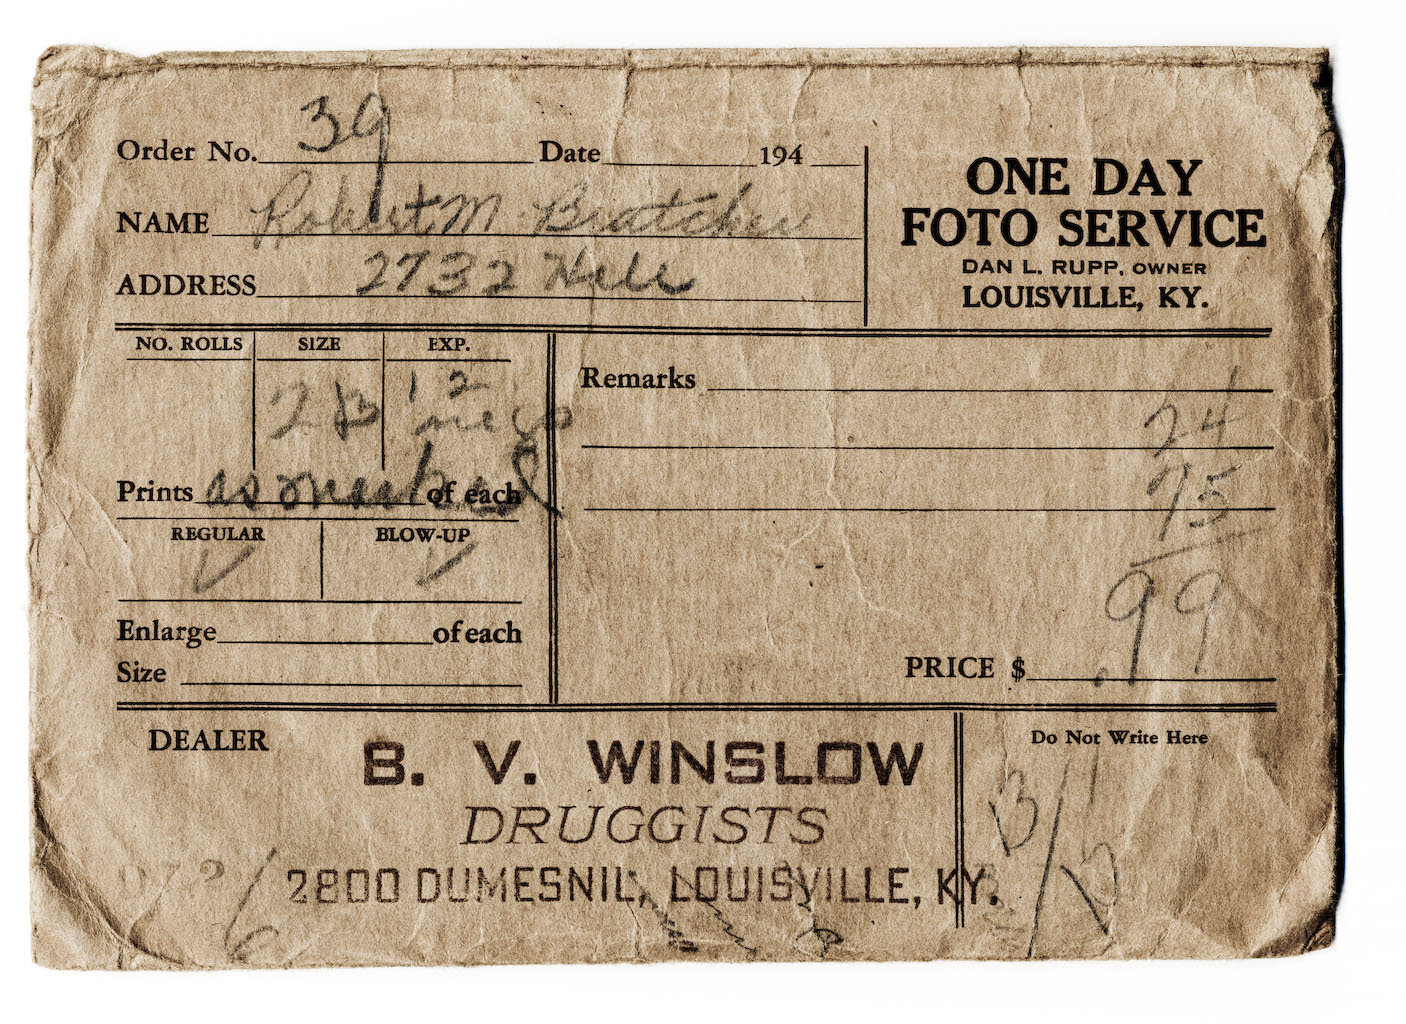 Order No. 39 Date 194
NAME Robert M Bratcher
ADDRESS 2732 Hale
ONE DAY
FOTO SERVICE
DAN L. RUPP, OWNER
LOUISVILLE, KY.
NO. ROLLS SIZE EXP.
12
2 B negs
Prints as marked of each
REGULAR BLOW-UP
✓ ✓
Enlarge of each
Size
Remarks
24
75
.99
PRICE $
DEALER
B. V. WINSLOW
DRUGGISTS
2800 DUMESNIL, LOUISVILLE, KY.
Do Not Write Here